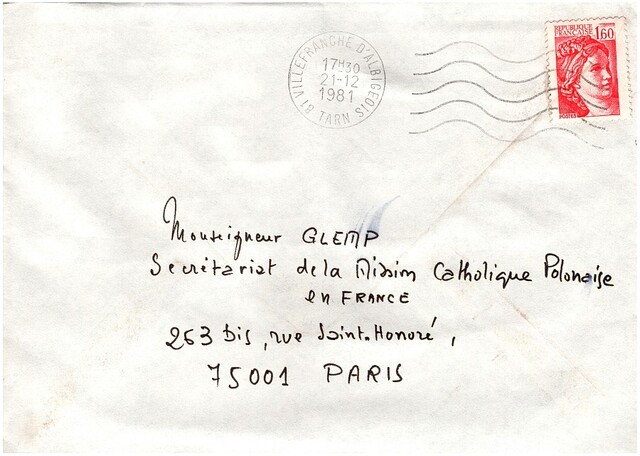 81 VILLEFRANCHE D'ALBIGEOIS
17H30
21-12
1981
TARN
REPUBLIQUE
FRANÇAISE 1,60
POSTES
Monseigneur GLEMP
Secrétariat de la Mission Catholique Polonaise
en FRANCE
263 bis, rue Saint-Honoré,
75001 PARIS